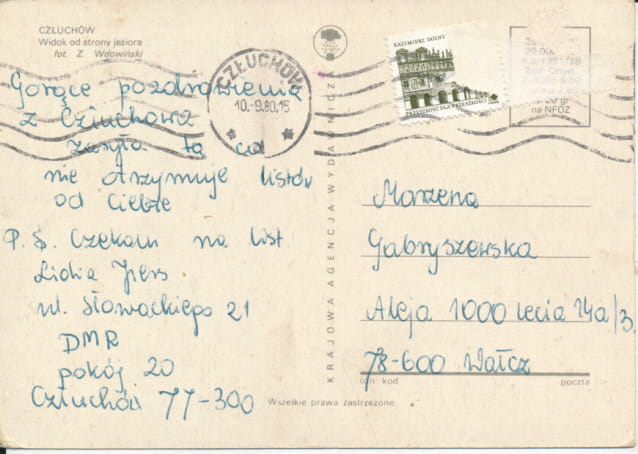 CZŁUCHÓW
Widok od strony jeziora
fot. Z. Wdowiński
Gorące pozdrowienia
z Człuchowa
zasyła ta co
nie otrzymuje listów
od Ciebie
P.S. Czekam na list
Lidia
ul. Słowackiego 21
DMR
pokój 20
Człuchów 77-300
CZŁUCHÓW
10.-9.80.15
KAZIMIERZ DOLNY
PRZESZŁOŚCI
gr
na NFOZ
KRAJOWA AGENCJA WYDAWNICZA
Marzena
Gabryszewska
Aleja 1000 lecia 14a/3
78-600 Wałcz
kod
poczta
Wszelkie prawa zastrzeżone